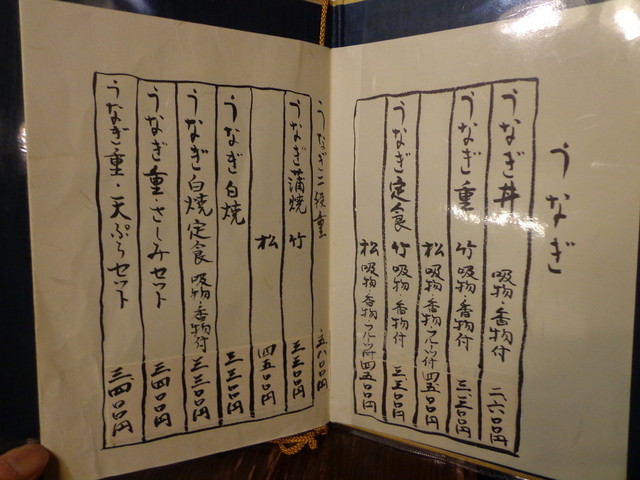 うなぎ
うなぎ丼 吸物・香物付 二六〇〇円
うなぎ重 竹 吸物・香物付 三三〇〇円
松 吸物・香物フルーツ付 四五〇〇円
うなぎ定食 竹 吸物・香物付 三三〇〇円
松 吸物・香物フルーツ付 四五〇〇円
うなぎ二段重 五八〇〇円
うなぎ蒲焼 竹 三三〇〇円
松 四五〇〇円
うなぎ白焼 三三〇〇円
うなぎ白焼定食 吸物・香物付 三三〇〇円
うなぎ重・さしみセット 三四〇〇円
うなぎ重・天ぷらセット 三四〇〇円